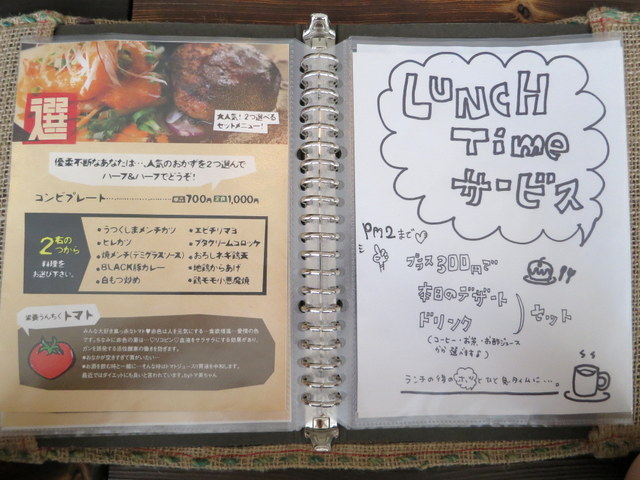 選
大人気!2つ選べる
セットメニュー!
優柔不断なあなたは…、人気のおかずを2つ選んで
ハーフ&ハーフでどうぞ!
コンビプレート 単品 700円 定食 1,000円
右の
2つから
料理を
お選び下さい。
• うつくしまメンチカツ
• ヒレカツ
• 焼メンチ(デミグラスソース)
• BLACK豚カレー
• 白もつ炒め
• エビチリマヨ
• ブタクリームコロッケ
• おろしネギ鶏天
• 地鶏からあげ
• 鶏モモ小悪魔焼
栄養うんちく トマト
みんな大好き真っ赤なトマト♥赤色は人を元気にする…食欲増進…愛情の色
LUNCH
Time
サービス
PM2まで♡
プラス300円で
本日のデザート
ドリンク
セット
(コーヒー・お茶・お酢ジュース
から選べますよ)
ランチの後のホッとひと息タイムに…。